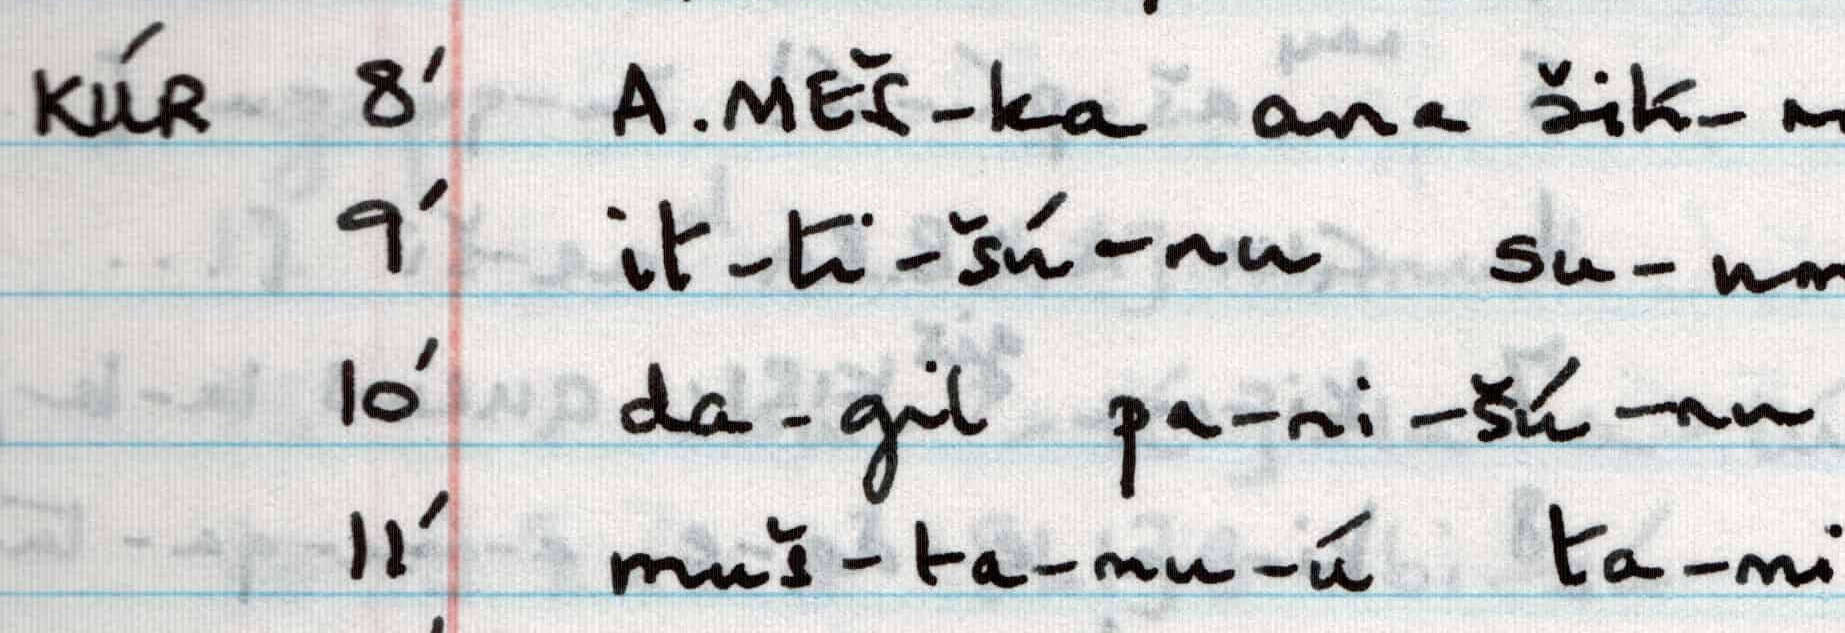 KÚR 8' A.MEŠ-ka ana šik-
9' it-ti-šú-nu su-
10' da-gil pa-ni-šú-nu
11' muš-ta-nu-ú ta-ni